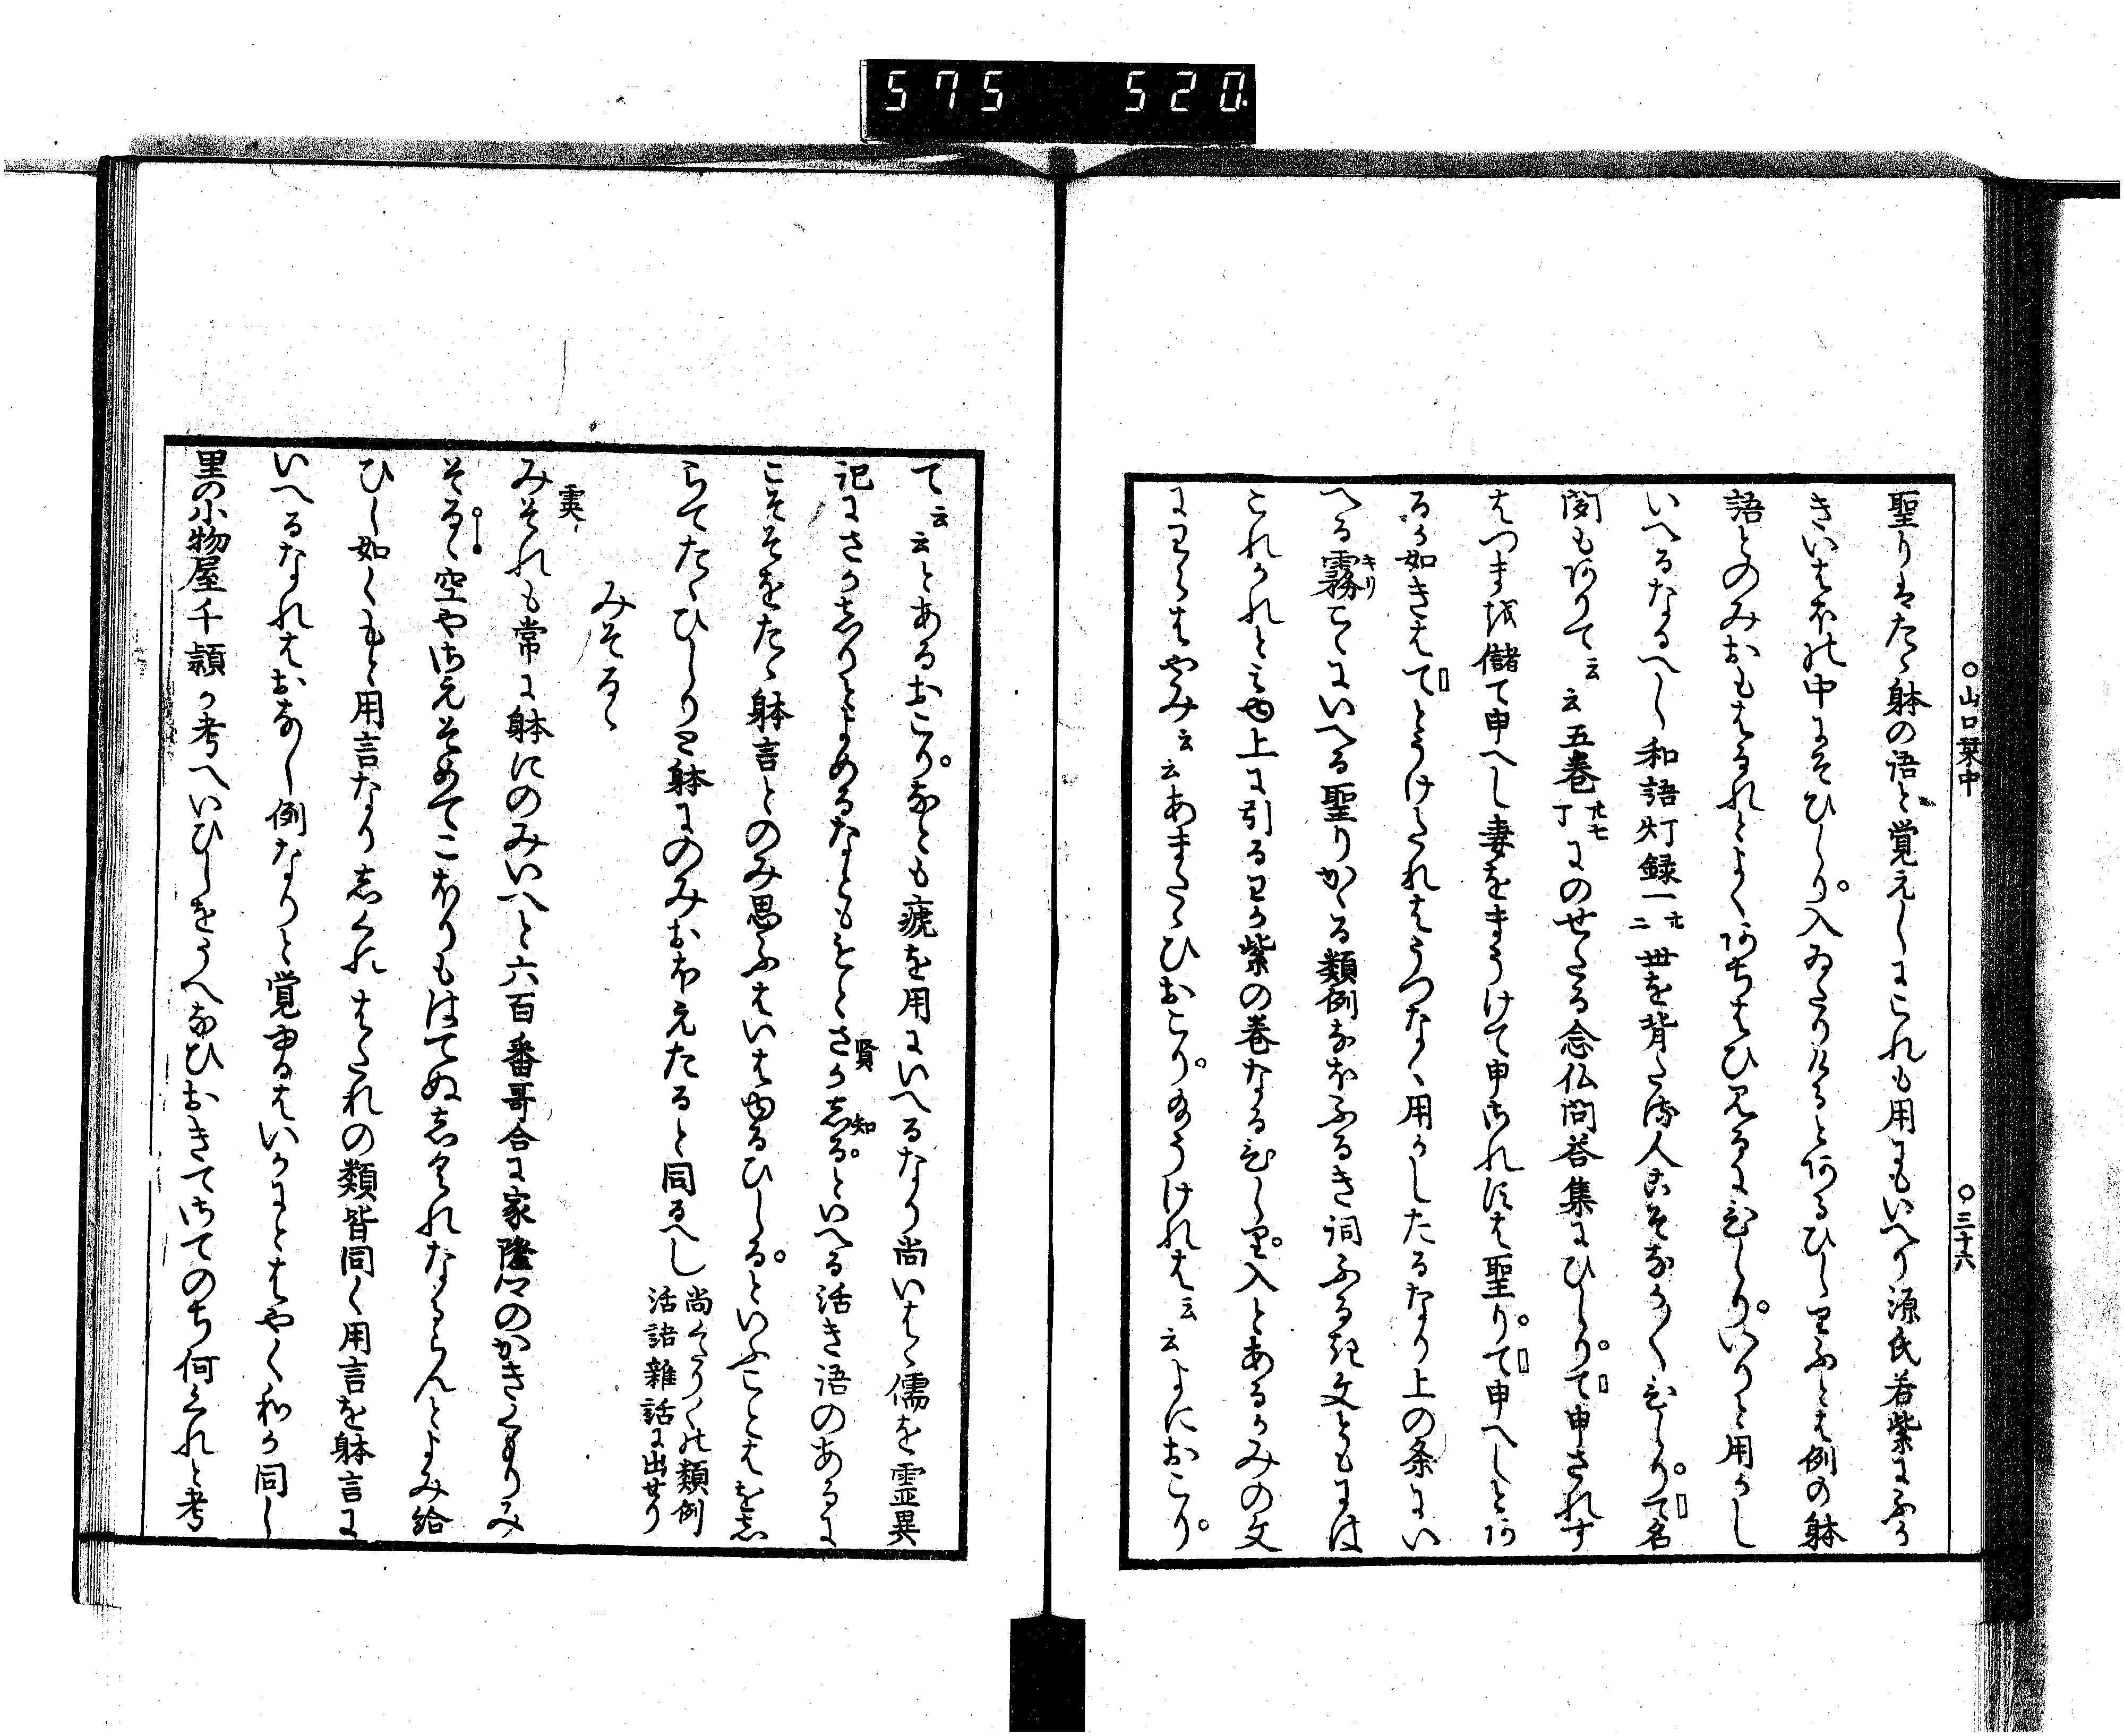 575 520
○山口栞中 ○三十六
聖りはたゝ躰の語と覚えしにこれも用にもいへり源氏若紫にふか
きいはほの中にそひしり入ゐたりけるとあるひしりふとは例の躰
語とのみおもはるれとよくあちはひ見るにひしりいりと用かし
いへるなるへし和語灯録一廿二世を背たる人こそなかくひしりて名
聞もありて云云五巻廿七丁にのせたる念仏問答集にひしりて申されす
はつまを儲て申へし妻をまうけて申されすは聖りて申へしとあ
るか如きはてとうけたれはうつなく用かしたるなり上の条にい
へる霧こゝにいへる聖りかゝる類例なほふるき詞ふるき文ともには
これかれと見ゆ上に引るわか紫の巻なるひしり入とあるかみの文
にわらはやみ云云あまたゝひおこりようけれは云云よにおこり
て云云とあるおこりなとも瘧を用にいへるなり尚いはゝ儒を霊異
記にさかしりとよめるなともをとさか賢しる知といへる活き語のあるに
こそそをたゝ躰言とのみ思ふはいはゆるひしるといふことはをし
らてたゝひしりと躰にのみおほえたると同るへし尚そかりの類例
活語雑話に出せり
みそるゝ
みそれも霙常に躰にのみいへと六百番哥合に家隆卿のかきくもりみ
そるゝ空やさえそめてこほりもはてぬしくれなるらんとよみ給
ひし如くもと用言なりしくれはたれの類皆同く用言を躰言に
いへるなれはおなし例なりと覚ゆるはいかにとはやく和か同し
里の小物屋千頴か考へいひしをうへなひおきてさてのち何くれと考